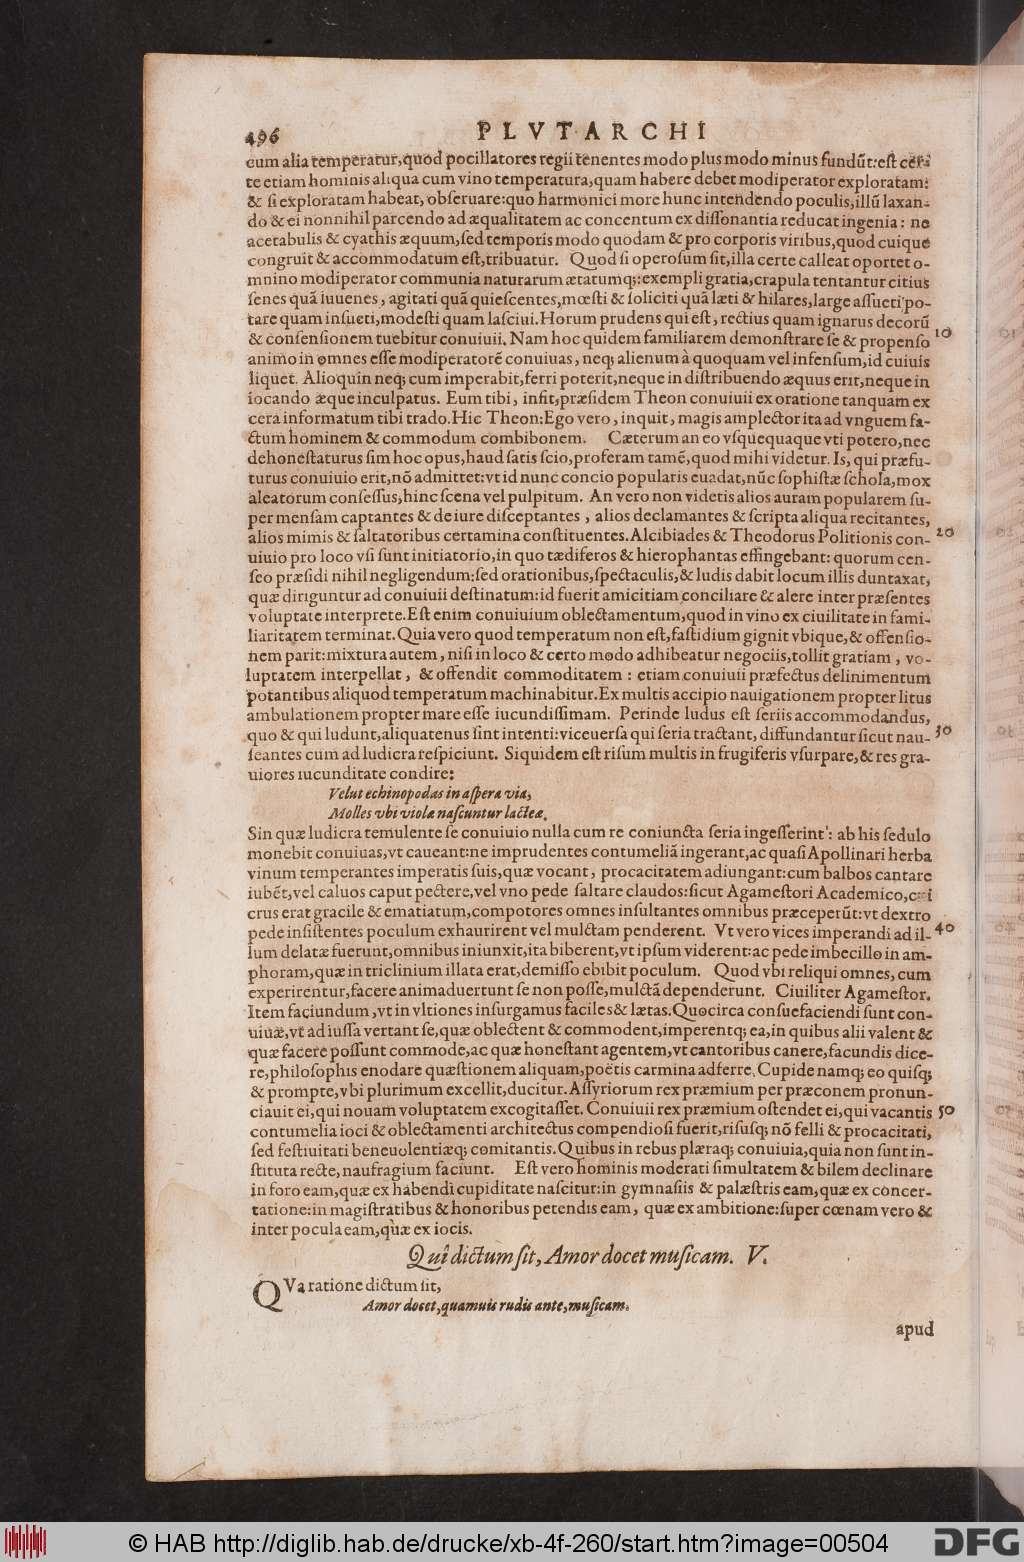 496 PLVTARCHI
cum alia temperatur, quod pocillatores regii tenentes modo plus modo minus fundũt: est cer-
te etiam hominis aliqua cum vino temperatura, quam habere debet modiperator exploratam:
& si exploratam habeat, obseruare: quo harmonici more hunc intendendo poculis, illũ laxan-
do & ei nonnihil parcendo ad æqualitatem ac concentum ex dissonantia reducat ingenia: ne
acetabulis & cyathis æquum, sed temporis modo quodam & pro corporis viribus, quod cuique
congruit & accommodatum est, tribuatur. Quod si operosum sit, illa certe calleat oportet o-
mnino modiperator communia naturarum ætatumq;: exempli gratia, crapula tentantur citius
senes quã iuuenes, agitati quã quiescentes, mœsti & soliciti quã læti & hilares, large assueti po-
tare quam insueti, modesti quam lasciui. Horum prudens qui est, rectius quam ignarus decorũ
& consensionem tuebitur conuiuii. Nam hoc quidem familiarem demonstrare se & propenso 10
animo in omnes esse modiperatorẽ conuiuas, neq; alienum à quoquam vel infensum, id cuiuis
liquet. Alioquin neq; cum imperabit, ferri poterit, neque in distribuendo æquus erit, neque in
iocando æque inculpatus. Eum tibi, insit, præsidem Theon conuiuii ex oratione tanquam ex
cera informatum tibi trado. Hic Theon: Ego vero, inquit, magis amplector ita ad vnguem fa-
ctum hominem & commodum combibonem. Cæterum an eo vsquequaque vti potero, nec
dehonestaturus sim hoc opus, haud satis scio, proferam tamẽ, quod mihi videtur. Is, qui præfu-
turus conuiuio erit, nõ admittet: vt id nunc concio popularis euadat, nũc sophistæ schola, mox
aleatorum consessus, hinc scena vel pulpitum. An vero non videtis alios auram popularem su-
per mensam captantes & de iure disceptantes, alios declamantes & scripta aliqua recitantes,
alios mimis & saltatoribus certamina constituentes. Alcibiades & Theodorus Politionis con- 20
uiuio pro loco vsi sunt initiatorio, in quo tædiferos & hierophantas effingebant: quorum cen-
seo præsidi nihil negligendum: sed orationibus, spectaculis, & ludis dabit locum illis duntaxat,
quæ diriguntur ad conuiuii destinatum: id fuerit amicitiam conciliare & alere inter præsentes
voluptate interprete. Est enim conuiuium oblectamentum, quod in vino ex ciuilitate in fami-
liaritatem terminat. Quia vero quod temperatum non est, fastidium gignit vbique, & offensio-
nem parit: mixtura autem, nisi in loco & certo modo adhibeatur negociis, tollit gratiam, vo-
luptatem interpellat, & offendit commoditatem: etiam conuiuii præfectus delinimentum
potantibus aliquod temperatum machinabitur. Ex multis accipio nauigationem propter litus
ambulationem propter mare esse iucundissimam. Perinde ludus est seriis accommodandus,
quo & qui ludunt, aliquatenus sint intenti: viceuersa qui seria tractant, diffundantur sicut nau- 30
seantes cum ad ludicra respiciunt. Siquidem est risum multis in frugiferis vsurpare, & res gra-
uiores iucunditate condire:
Velut echinopodas in aspera via,
Molles vbi violæ nascuntur lacteæ.
Sin quæ ludicra temulente se conuiuio nulla cum re coniuncta seria ingesserint: ab his sedulo
monebit conuiuas, vt caueant: ne imprudentes contumeliã ingerant, ac quasi Apollinari herba
vinum temperantes imperatis suis, quæ vocant, procacitatem adiungant: cum balbos cantare
iubẽt, vel caluos caput pectere, vel vno pede saltare claudos: sicut Agamestori Academico, cui
crus erat gracile & ematiatum, compotores omnes insultantes omnibus præceperũt: vt dextro
pede insistentes poculum exhaurirent vel mulctam penderent. Vt vero vices imperandi ad il- 40
lum delatæ fuerunt, omnibus iniunxit, ita biberent, vt ipsum viderent: ac pede imbecillo in am-
phoram, quæ in triclinium illata erat, demisso ebibit poculum. Quod vbi reliqui omnes, cum
experirentur, facere animaduertunt se non posse, mulctã dependerunt. Ciuiliter Agamestor.
Item faciundum, vt in vltiones insurgamus faciles & lætas. Quocirca consuefaciendi sunt con-
uiuæ, vt ad iussa vertant se, quæ oblectent & commodent, imperentq; ea, in quibus alii valent &
quæ facere possunt commode, ac quæ honestant agentem, vt cantoribus canere, facundis dice-
re, philosophis enodare quæstionem aliquam, poëtis carmina adferre. Cupide namq; eo quisq;
& prompte, vbi plurimum excellit, ducitur. Assyriorum rex præmium per præconem pronun-
ciauit ei, qui nouam voluptatem excogitasset. Conuiuii rex præmium ostendet ei, qui vacantis 50
contumelia ioci & oblectamenti architectus compendiosi fuerit, risusq; nõ felli & procacitati,
sed festiuitati beneuolentiæq; comitantis. Quibus in rebus plæraq; conuiuia, quia non sunt in-
stituta recte, naufragium faciunt. Est vero hominis moderati simultatem & bilem declinare
in foro eam, quæ ex habendi cupiditate nascitur: in gymnasiis & palæstris eam, quæ ex concer-
tatione: in magistratibus & honoribus petendis eam, quæ ex ambitione: super cœnam vero &
inter pocula eam, quæ ex iocis.
Quî dictum sit, Amor docet musicam. V.
QVa ratione dictum sit,
Amor docet, quamuis rudis ante, musicam.
apud
© HAB http://diglib.hab.de/drucke/xb-4f-260/start.htm?image=00504
DFG